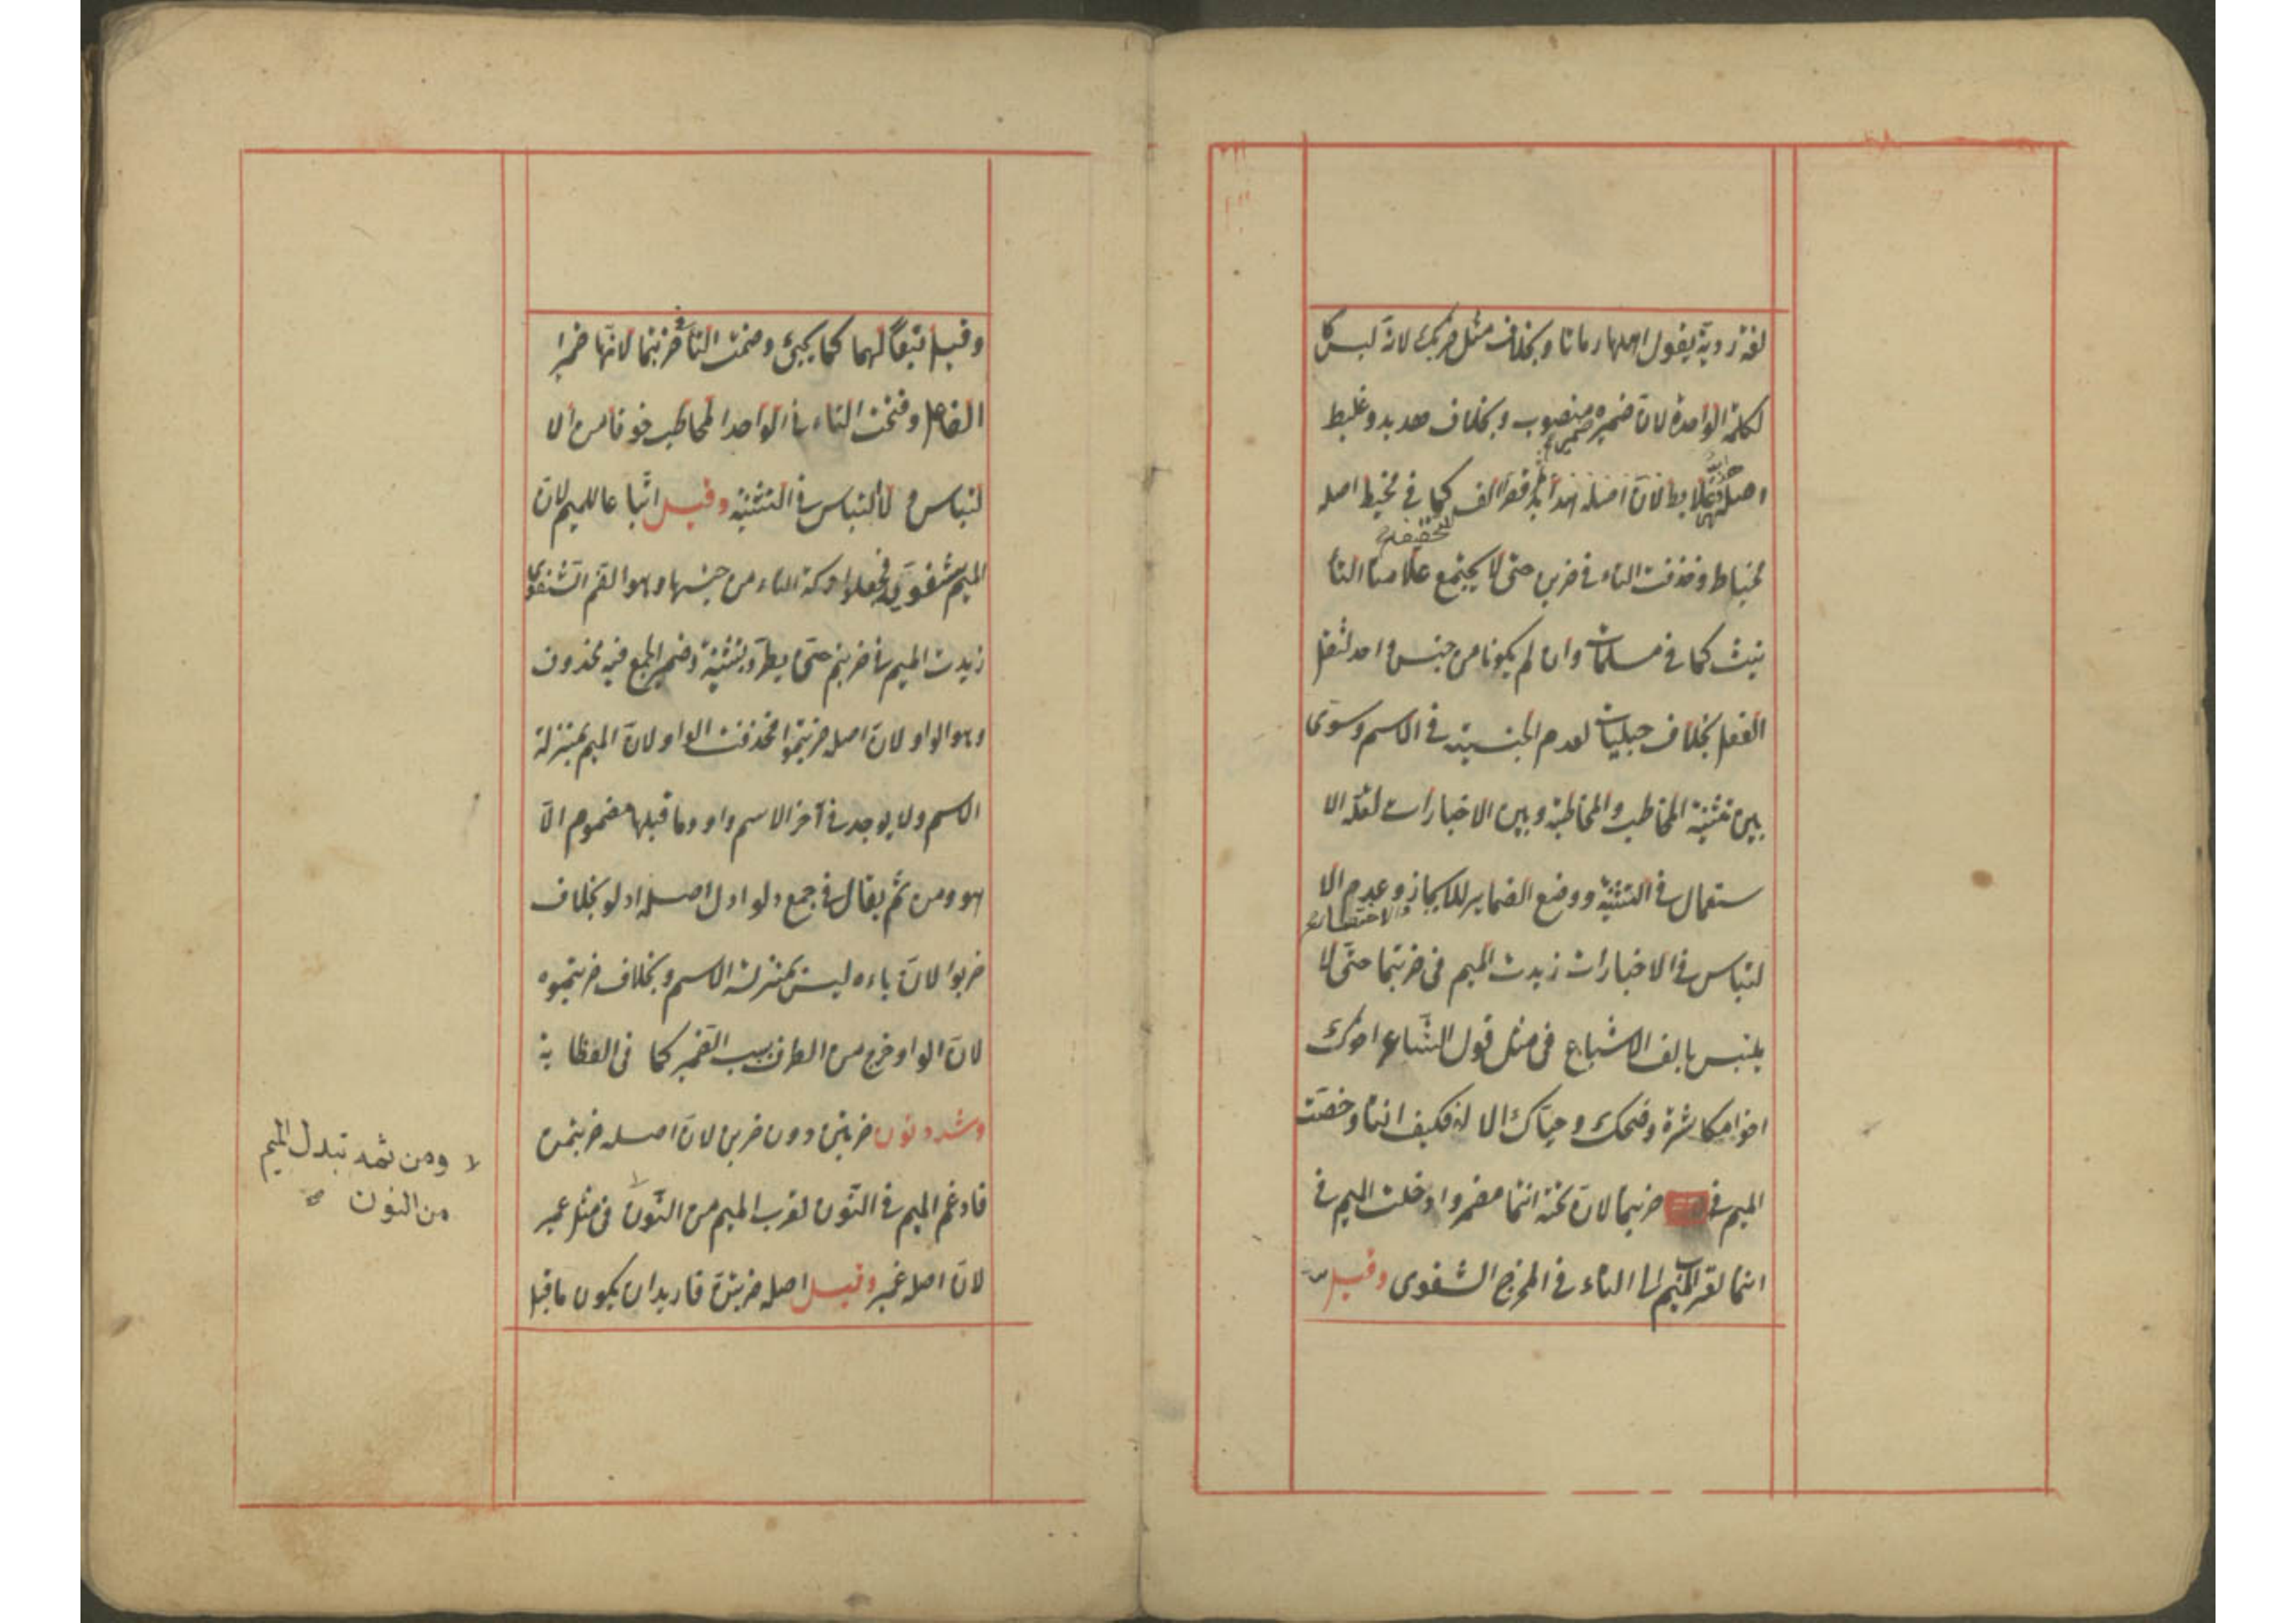 لغة ردية يقول اهلها رمانا وبخلاف مثل ضربك لانه ليس كا
لكلمة الواحدة لان ضميره ضمير منصوب وبخلاف هدبد وعلبط
اصله هدابد وعلابط لان اصله هدابد قصرا لف كما في مخيط اصله
للتخفيف
مخياط وحذفت التاء في ضربن حتى لا يجتمع علامتا التا
نيث كما في مسلمات وان لم يكونا من جنس واحد لثقل
الفعل بخلاف حبليات لعدم الجنسية في الاسم وسوى
بين تثنية المخاطب والمخاطبة وبين الاخبارات لقلة الا
ستعمال في التثنية ووضع الضماير للايجاز وعدم الا
والاختصار
لتباس في الاخبارات زيدت الميم في ضربتما حتى لا
يلتبس بالف الاشباع في مثل قول الشاعر اخوك
اخو مكاشرة وضحك وحياك الا له فكيف انتا وخصت
الميم في ضربتما لان تحته انتما مضمر وادخلت الميم في
انتما لقرب الميم الى التاء في المخرج الشفوى وقيل
وقيل تبعا لهما كما يجئ وضمت التا في ضربتما لانها ضمير
الفاعل وفتحت التاء في الواحد المخاطب خوفا من الا
لتباس ولا التباس في التثنية وقيل اتباعا للميم لان
الميم شفوية فجعلوا حركة التاء من جنسها وهو الضم الشفوى
زيدت الميم في ضربتم حتى يطرد بتثنية وضمير الجمع فيه محذوف
وهو الواو لان اصله ضربتموا فحذفت الواو لان الميم بمنزلة
الاسم ولا يوجد في آخر الاسم واو وما قبلها مضموم الا
هو ومن ثم يقال في جمع دلو ادل اصله ادلو بخلاف
ضربوا لان باءه ليس بمنزلة الاسم وبخلاف ضربتموه
لان الواو خرج من الطرف بسبب الضمير كما في العظاية
وشدد نون ضربتن دون ضربن لان اصله ضربتمن
فادغم الميم في النون لقرب الميم من النون في مثل عمبر
لان اصله عنبر وقيل اصله ضربتن فاريد ان يكون ما قبل
ومن ثمه تبدل الميم
من النون صح